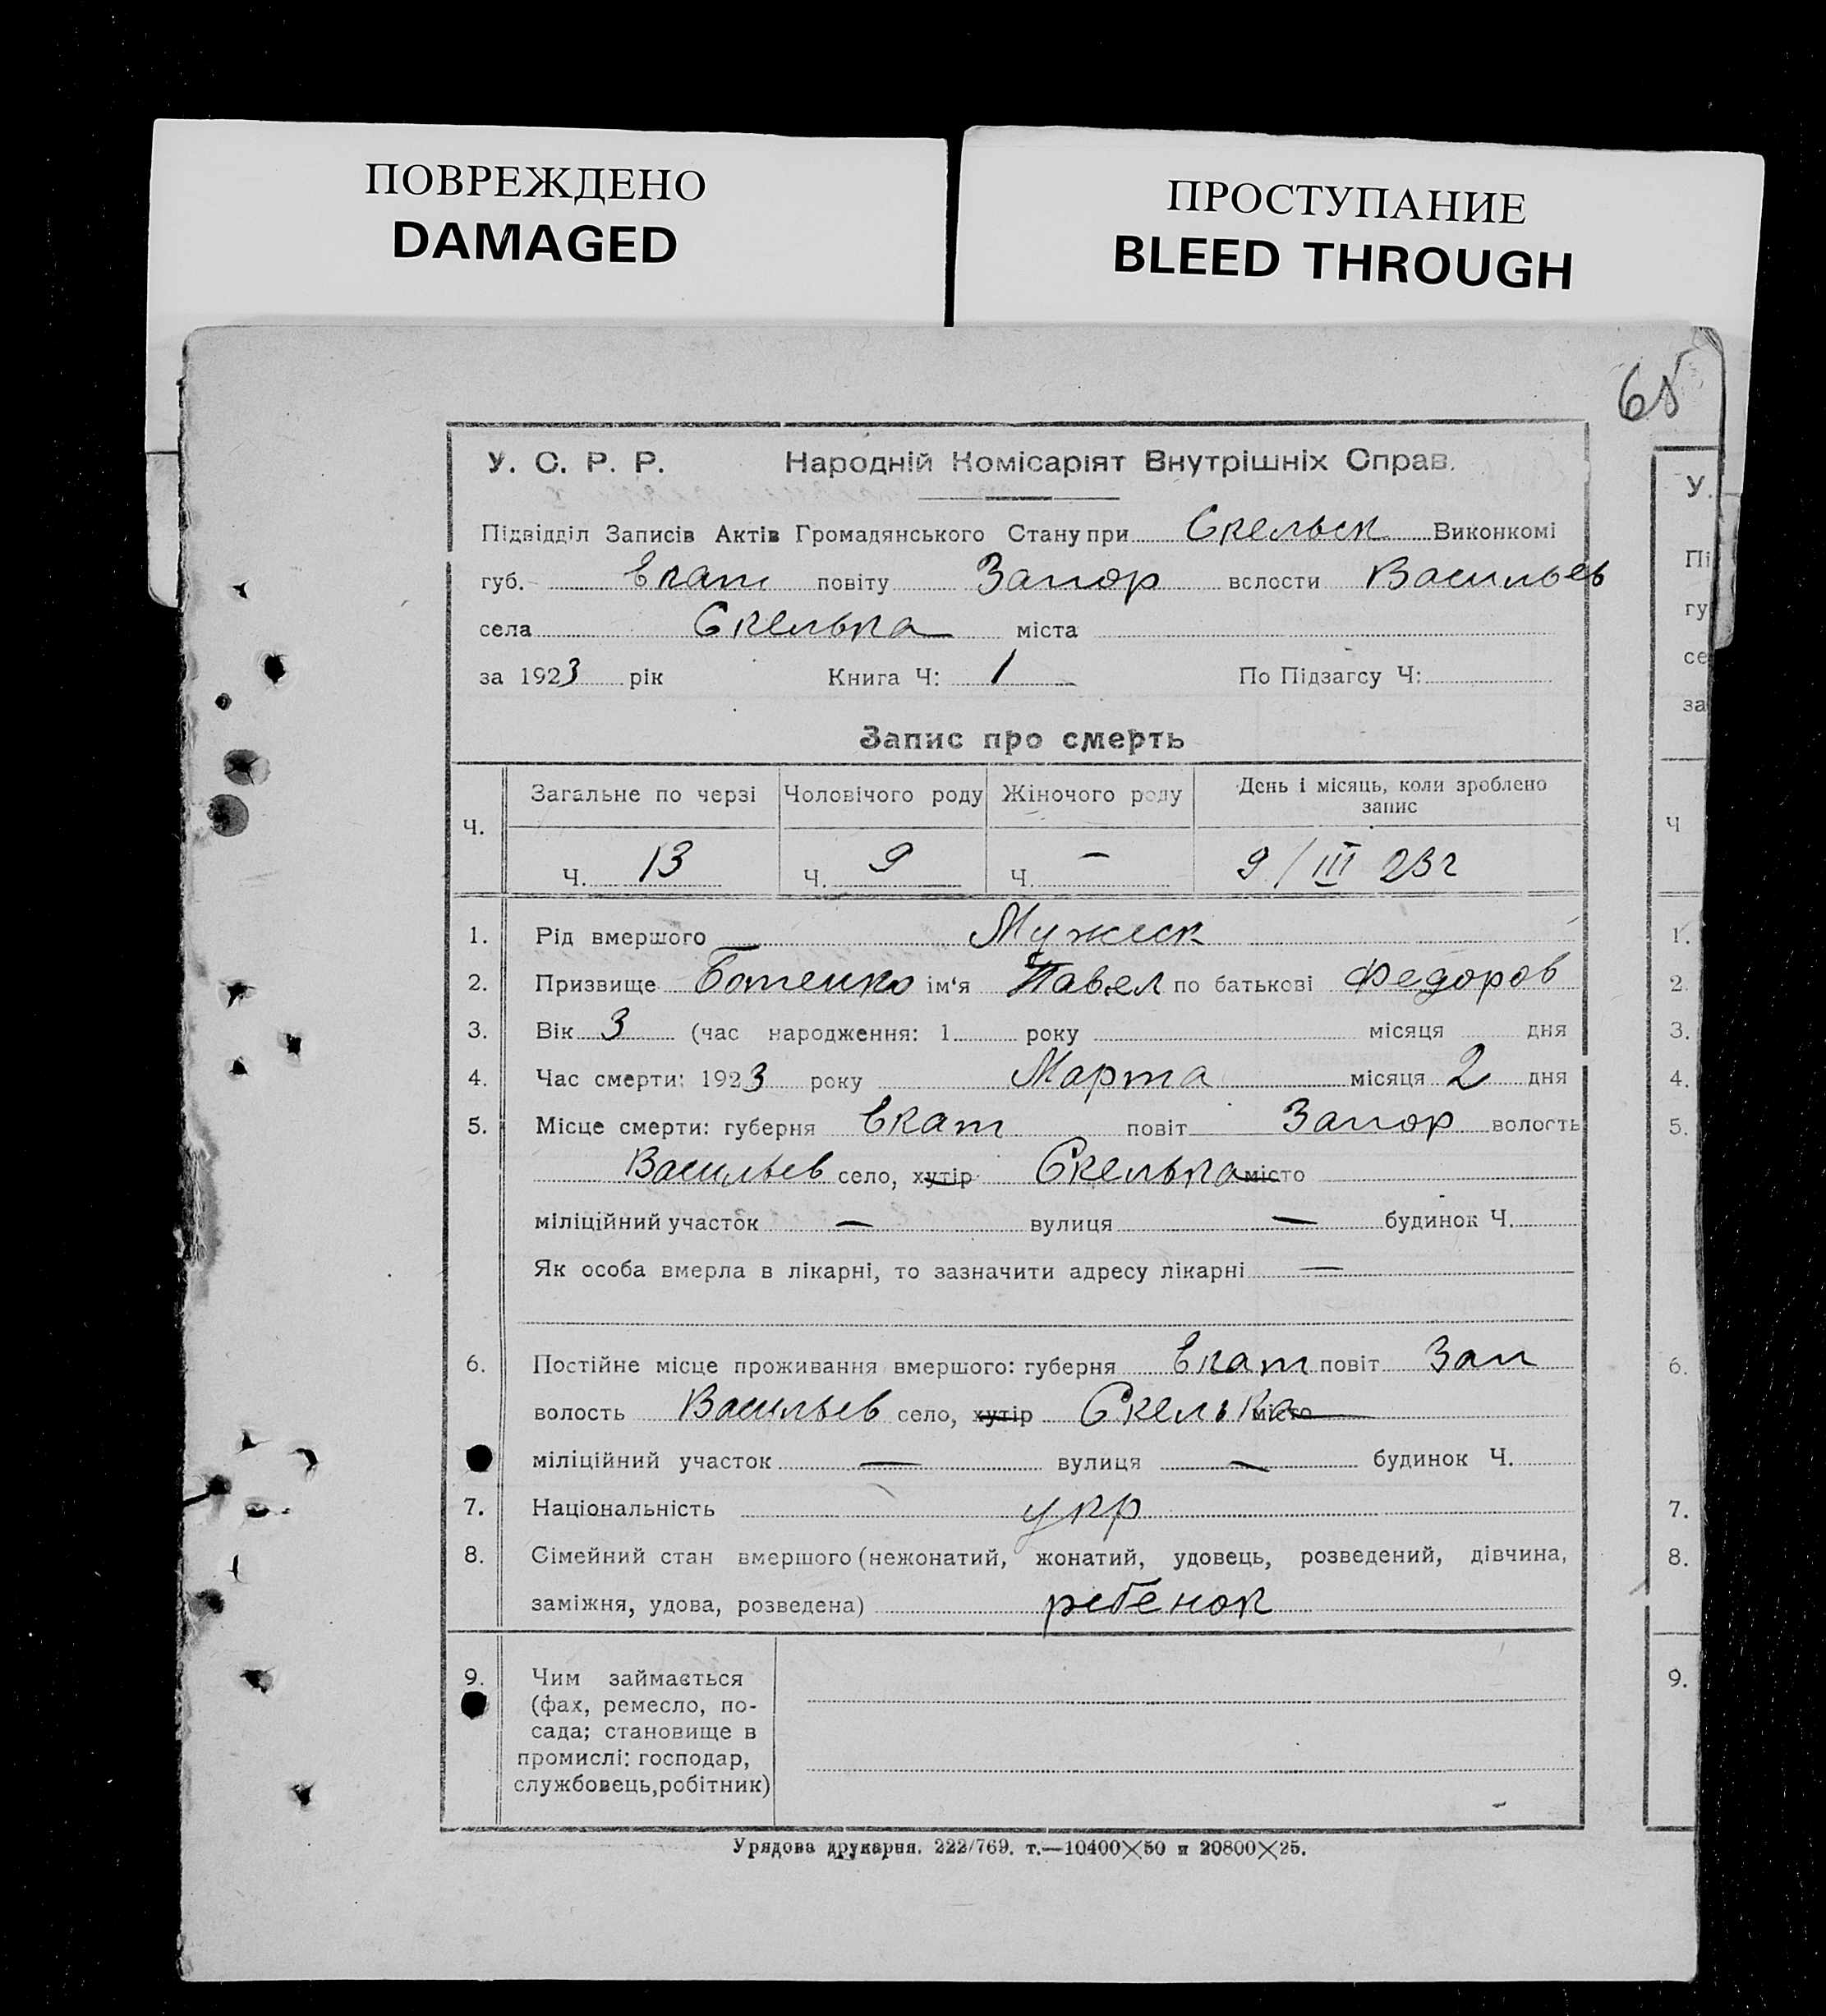 ПОВРЕЖДЕНО
DAMAGED
ПРОСТУПАНИЕ
BLEED THROUGH
65
У. С. Р. Р. Народній Комісаріят Внутрішніх Справ.
Підвідділ Записів Актів Громадянського Стану при Скельск Виконкомі
губ. Екат повіту Запор волости Васильев
села Скелька міста
за 1923 рік Книга Ч: 1 По Підзагсу Ч:
Запис про смерть
Ч. Загальне по черзі Чоловічого роду Жіночого роду День і місяць, коли зроблено запис
Ч. 13 Ч. 9 Ч. — 9/III 23г
1. Рід вмершого Мужеск
2. Призвище Ботенко ім'я Павел по батькові Федоров
3. Вік 3 (час народження: 1 року місяця дня
4. Час смерти: 1923 року Марта місяця 2 дня
5. Місце смерти: губерня Екат повіт Запор волость
Васильев село, хутір Скелька місто
міліційний участок — вулиця — будинок Ч.
Як особа вмерла в лікарні, то зазначити адресу лікарні —
6. Постійне місце проживання вмершого: губерня Екат повіт Зап
волость Васильев село, хутір Скелька місто
міліційний участок — вулиця — будинок Ч.
7. Національність укр
8. Сімейний стан вмершого (нежонатий, жонатий, удовець, розведений, дівчина,
заміжня, удова, розведена) ребенок
9. Чим займається
(фах, ремесло, по-
сада; становище в
промислі: господар,
службовець, робітник)
Урядова друкарня. 222/769. т.—10400×50 и 20800×25.
У.
Пі
гу
се
за
Ч
1.
2
3.
4.
5.
6.
7.
8.
9.